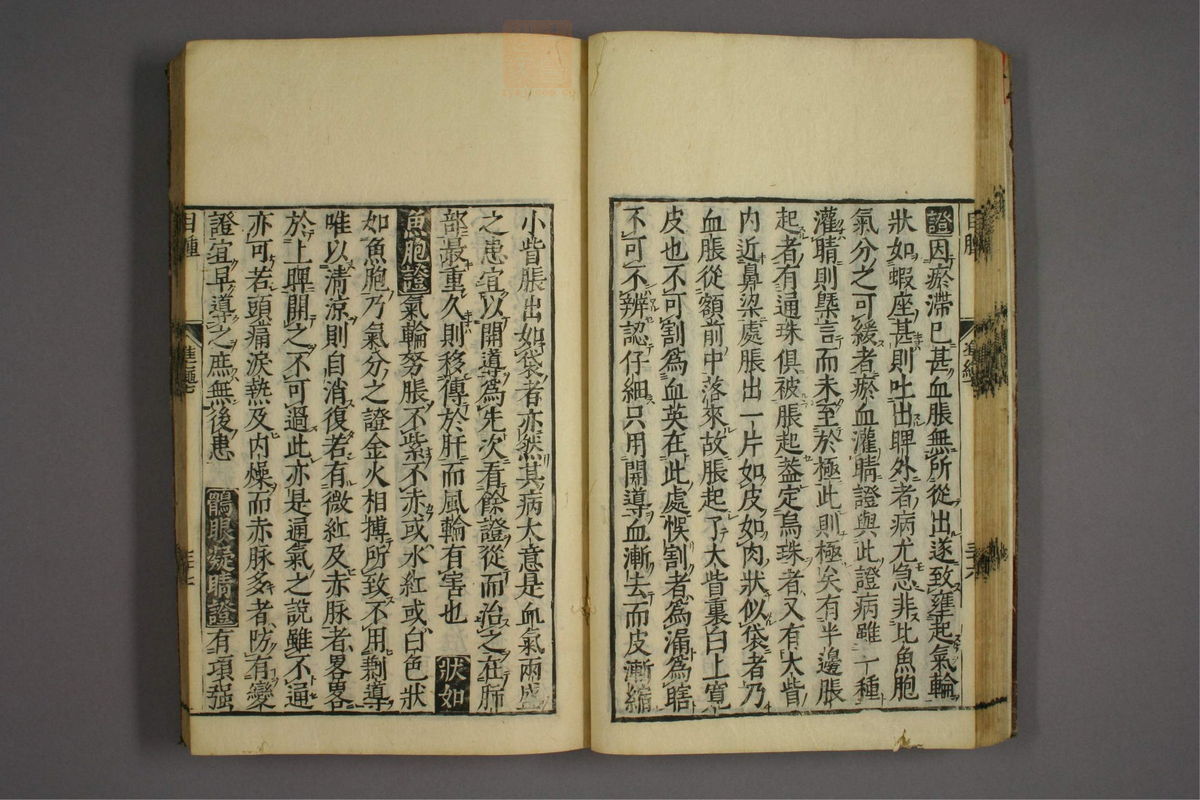 證因瘀滯已甚血脹無所從出遂致壅起氣輪
狀如蝦座甚則吐出睥外者病尤急非比魚胞
氣分之可緩者瘀血灌睛證與此證病雖一種
灌睛則槩言而未至於極此則極矣有半邊脹
起者有通珠俱被脹起蓋定烏珠者又有大眥
内近鼻梁處脹出一片如皮如肉狀似袋者乃
血脹從額前中落來故脹起了大眥裏白上寬
皮也不可割爲血英在此處悞割者爲漏爲瞎
不可不辨認仔細只用開導血漸去而皮漸縮
小眥脹出如袋者亦然其病大意是血氣兩盛
之患宜以開導爲先次看餘證從而治之在肺
部最重久則移傳於肝而風輪有害也 狀如
魚胞證氣輪努脹不紫不赤或水紅或白色狀
如魚胞乃氣分之證金火相搏所致不用剰導
唯以清涼則自消復若有微紅及赤脉者畧畧
於上睥開之不可過此亦是通氣之說雖不通
亦可若頭痛淚熱及内燥而赤脉多者防有變
證宜早導之庶無後患 鶻眼凝睛證有項强
目腫